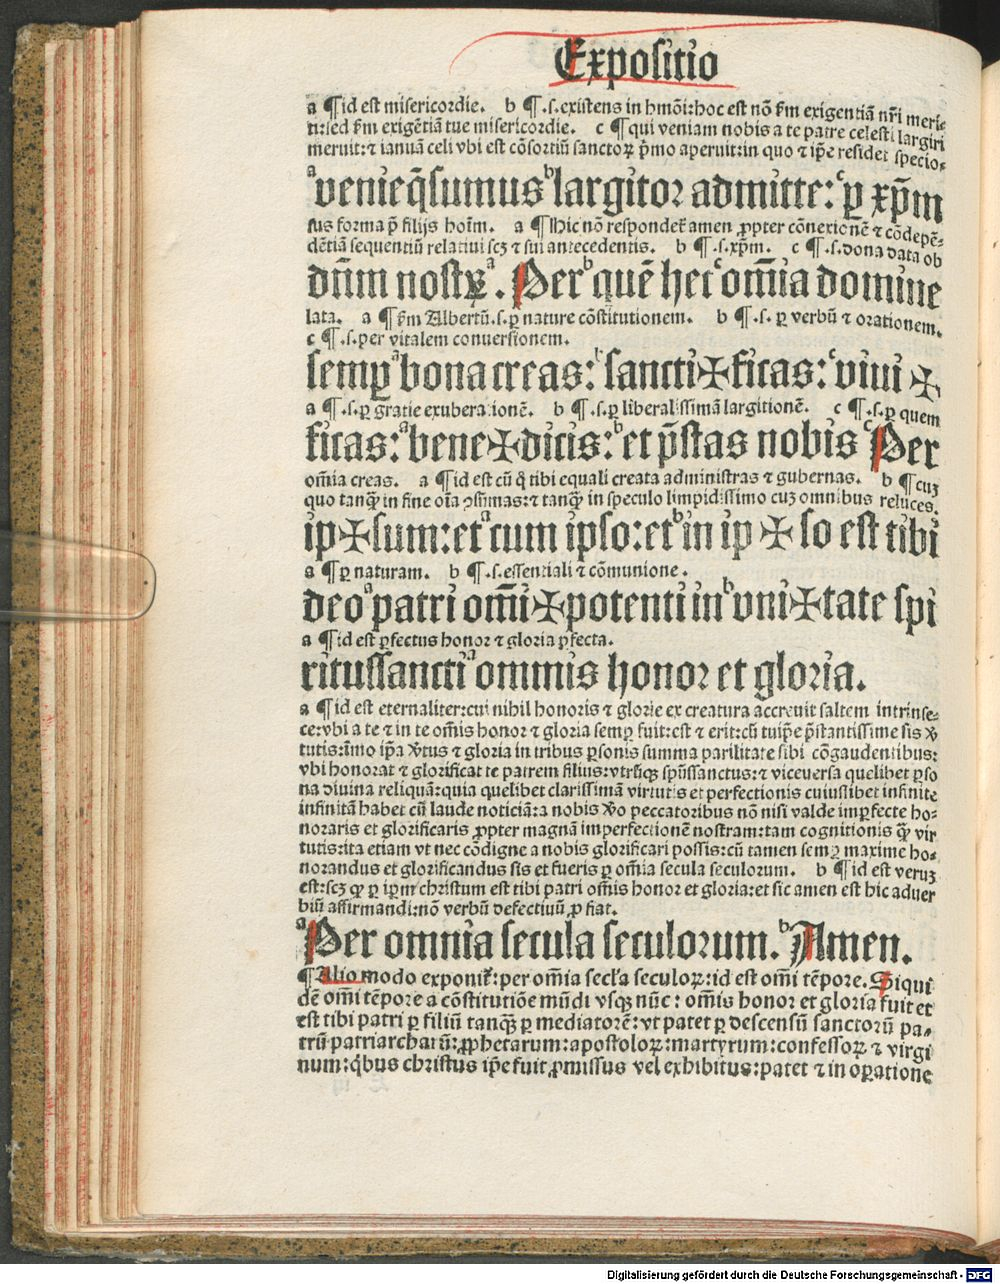 Expositio
a ¶ id est misericordie. b ¶ .s. existens in hmōi: hoc est nō ẜm exigentiā nr̄i meri⸗
ti: sed ẜm exigētiā tue misericordie. c ¶ qui veniam nobis a te patre celesti largiri
meruit: ⁊ ianuā celi vbi est cōsortiū sanctoꝝ p̄mo aperuit: in quo ⁊ ip̄e residet specio⸗
a venie q̄sumus b largitor admitte: c ꝑ xp̄m
sus forma p̄ filijs hoīm. a ¶ Hic nō respondet̄ amen ꝓpter cōnexionē ⁊ cōdepē⸗
dētiā sequentiū relatiui scꝫ ⁊ sui antecedentis. b ¶ .s. xp̄m. c ¶ .s. dona data ob
dn̄m nostꝝ a . Per b quē hec c om̄ia domine
lata. a ¶ ẜm Albertū .s. ꝑ nature cōstitutionem. b ¶ .s. ꝑ verbū ⁊ orationem.
c ¶ .s. per vitalem conuersionem.
semꝑ a bona creas: b sancti ✠ ficas: c viui ✠
a ¶ .s. ꝑ gratie exuberationē. b ¶ .s. ꝑ liberalissimā largitionē. c ¶ .s. ꝑ quem
ficas: a bene ✠ dicis: b et p̄stas nobis c Per
om̄ia creas. a ¶ id est cū q̄ tibi equali creata administras ⁊ gubernas. b ¶ cuꝫ
quo tanqꝫ in fine oīa ꝯsūmas: ⁊ tanqꝫ in speculo limpidissimo cuꝫ omnibus reluces.
ip ✠ sum: et a cum ipso: et b in ip ✠ so est tibi
a ¶ ꝑ naturam. b ¶ .s. essentiali ⁊ cōmunione.
deo a patri om̄i ✠ potenti in b vni ✠ tate spi
a ¶ id est ꝑfectus honor ⁊ gloria ꝑfecta.
ritussancti a ommis honor et gloria.
a ¶ id est eternaliter: cui nihil honoris ⁊ glorie ex creatura accreuit saltem intrinse⸗
ce: vbi a te ⁊ in te om̄is honor ⁊ gloria semꝑ fuit: est ⁊ erit: cū tuip̄e p̄stantissime sis v̄
tutis: īmo ip̄a v̄tus ⁊ gloria in tribus ꝑsonis summa parilitate sibi cōgaudentibus:
vbi honorat ⁊ glorificat te patrem filius: vtrūqꝫ spūssanctus: ⁊ viceversa quelibet ꝑso
na diuina reliquā: quia quelibet clarissimā virtutis et perfectionis cuiuslibet infinite
infinitā habet cū laude noticiā: a nobis v̄o peccatoribus nō nisi valde imꝑfecte ho⸗
noraris et glorificaris ꝓpter magnā imperfectionē nostram: tam cognitionis qꝫ vir
tutis: ita etiam vt nec cōdigne a nobis glorificari possis: cū tamen semꝑ maxime ho⸗
norandus et glorificandus sis et fueris ꝑ om̄ia secula seculorum. b ¶ id est veruꝫ
est: scꝫ ꝙ ꝑ ip̄m christum est tibi patri om̄is honor et gloria: et sic amen est hic aduer
biū affirmandi: nō verbū defectiuū ꝓ fiat.
a Per omnia secula seculorum. b Amen.
¶ Alio modo exponit̄: per om̄ia secl̄a seculoꝝ: id est om̄i tēpore. Siqui
dē om̄i tēpore a cōstitutiōe mūdi vsqꝫ nūc: om̄is honor et gloria fuit et
est tibi patri ꝑ filiū tanqꝫ ꝑ mediatorē: vt patet ꝑ descensū sanctorū pa⸗
trū patriarcharū: ꝓphetarum: apostoloꝝ: martyrum: confessoꝝ ⁊ virgi
num: q̄bus christus ip̄e fuit ꝓmissus vel exhibitus: patet ⁊ in oꝑatione
Digitalisierung gefördert durch die Deutsche Forschungsgemeinschaft - DFG